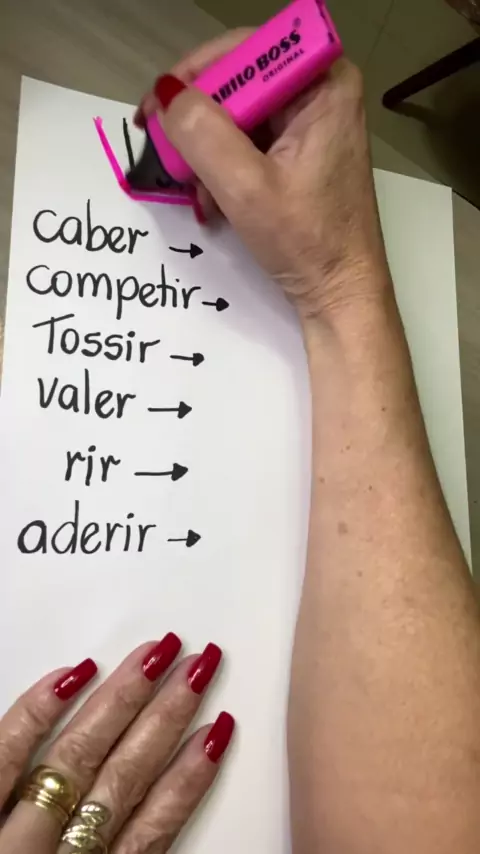 STABILO BOSS®
ORIGINAL
caber →
competir →
Tossir →
valer →
rir →
aderir →